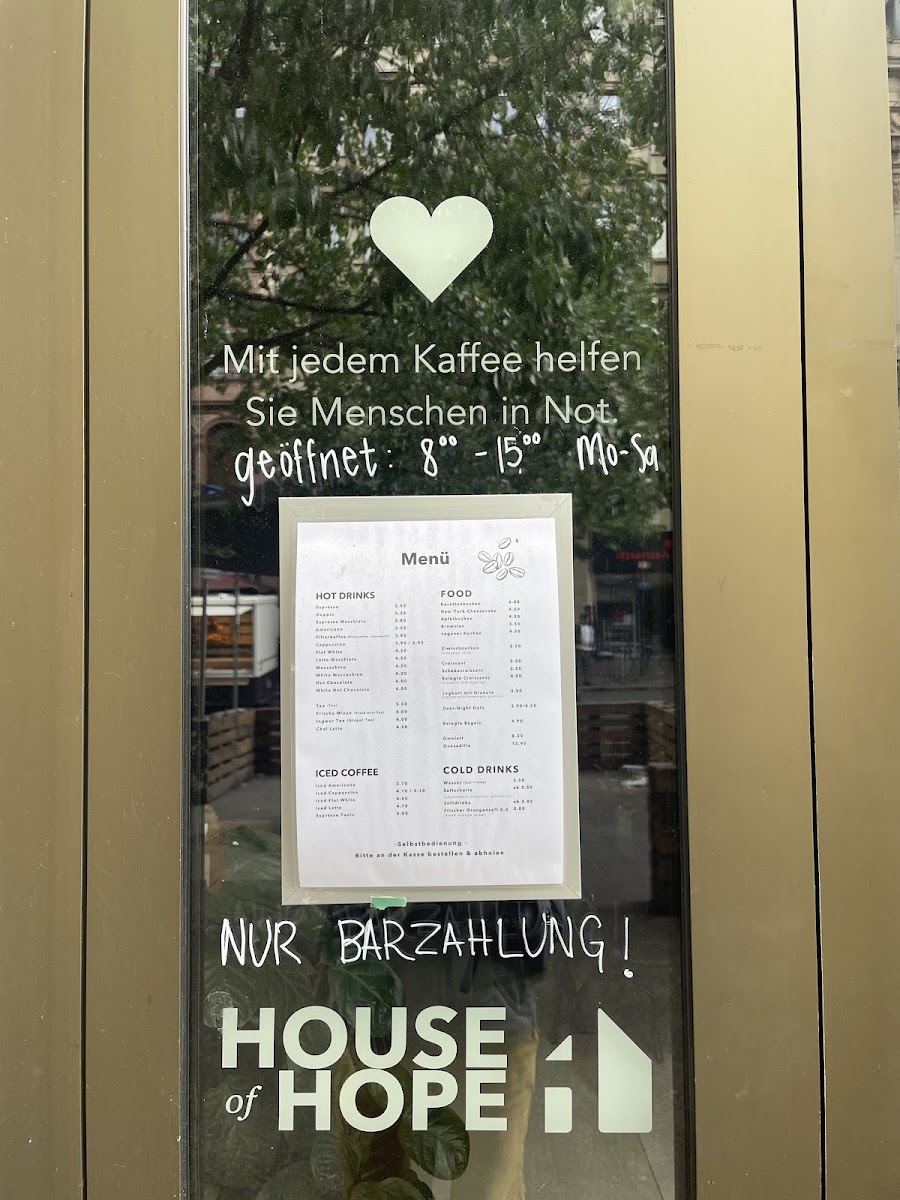 Mit jedem Kaffee helfen
Sie Menschen in Not.
geöffnet: 8⁰⁰ - 15⁰⁰ Mo-Sa
Menü
HOT DRINKS
Espresso 2.50
Doppio 3.30
Espresso Macchiato 2.80
Americano 3.50
Filterkaffee 2.80
Cappuccino 3.90 / 4.90
Flat White 4.20
Latte Macchiato 4.00
Moccachino 4.20
White Moccachino 4.20
Hot Chocolate 4.00
White Hot Chocolate 4.00
Tea (Tea) 3.50
Frische Minze (Fresh Mint Tea) 4.00
Ingwer Tee (Ginger Tea) 4.00
Chai Latte 4.50
ICED COFFEE
Iced Americano 3.70
Iced Cappuccino 4.10 / 5.10
Iced Flat White 4.40
Iced Latte 4.70
Espresso Tonic 5.00
FOOD
Karottenkuchen 4.00
New York Cheesecake 4.50
Apfelkuchen 4.00
Brownies 3.50
veganer Kuchen 4.50
Zimtschnecken 3.50
Croissant 2.00
Schokocroissant 2.50
Belegte Croissants 4.50
Joghurt mit Granola 5.50
Over-Night Oats 3.90/4.50
Belegte Bagels 4.90
Omelett 8.20
Quesadilla 12.90
COLD DRINKS
Wasser 2.50
Saftschorle ab 2.50
Softdrinks ab 3.00
Frischer Orangensaft 0,3 5.00
(fresh orange juice)
-Selbstbedienung -
Bitte an der Kasse bestellen & abholen
NUR BARZAHLUNG!
HOUSE
of HOPE